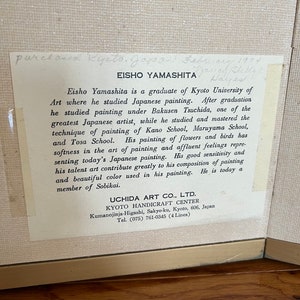 purchased Kyoto, Japan
EISHO YAMASHITA
Eisho Yamashita is a graduate of Kyoto University of
Art where he studied Japanese painting. After graduation
he studied painting under Bakusen Tsuchida, one of the
greatest Japanese artist, while he studied and mastered the
technique of painting of Kano School, Maruyama School,
and Tosa School. His painting of flowers and birds has
softness in the art of painting and affluent feelings repre-
senting today's Japanese painting. His good sensitivity and
his talent art contribute greatly to his composition of painting
and beautiful color used in his painting. He is today a
member of Sobikai.
UCHIDA ART CO., LTD.
KYOTO HANDICRAFT CENTER
Kumanojinja-Higashi, Sakyo-ku, Kyoto, 606, Japan
Tel. (075) 761-0345 (4 Lines)